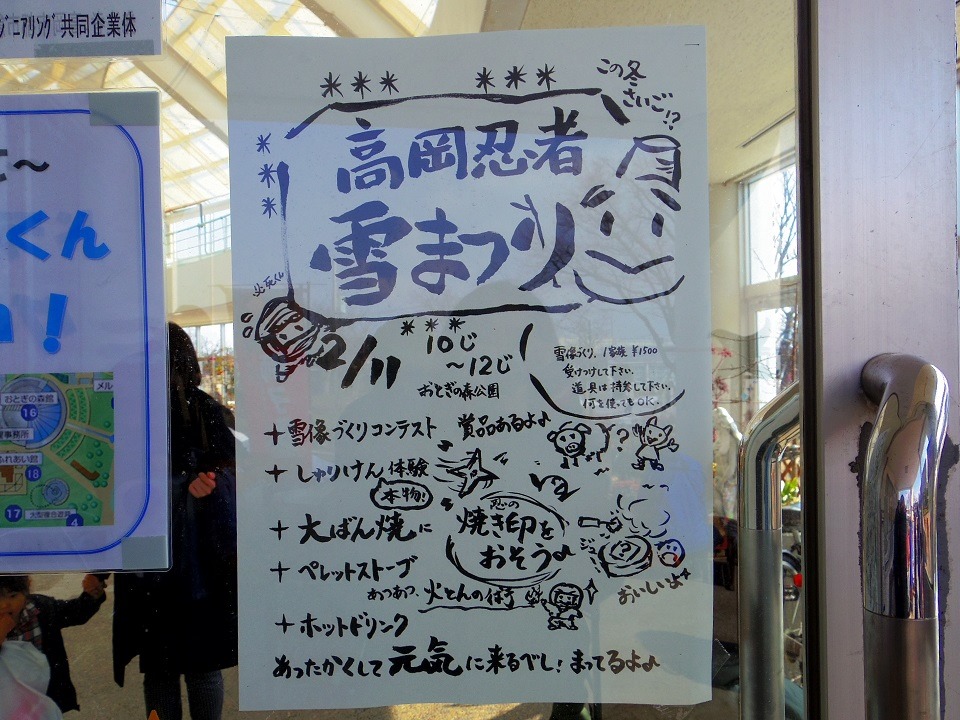 ｼﾞﾆｱﾘﾝｸﾞ 共同企業体
くん
！
メル
おとぎの森館
16
事務所
ふれあい館
18
17
4
この冬
さいご!?
高岡忍者
雪まつり
火玩くん
2/11
10じ
～12じ
おとぎの森公園
雪像づくり、1家族 ¥1500
受けつけして下さい。
道具は持参して下さい。
何を使ってもOK。
＋雪像づくりコンテスト 賞品あるよ♪
？
＋しゅりけん体験
本物！
＋大ばん焼に
忍の
焼き印を
おそう♪
ジー
？
おいしいよ
＋ペレットストーブ
あつあつ、火とんの術
＋ホットドリンク
あったかくして元気に来るべし！まってるよ♪